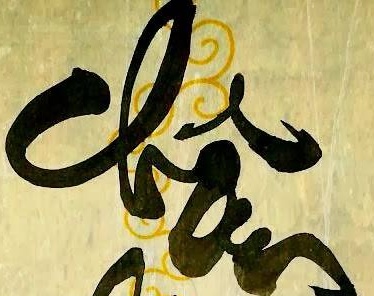 Chân